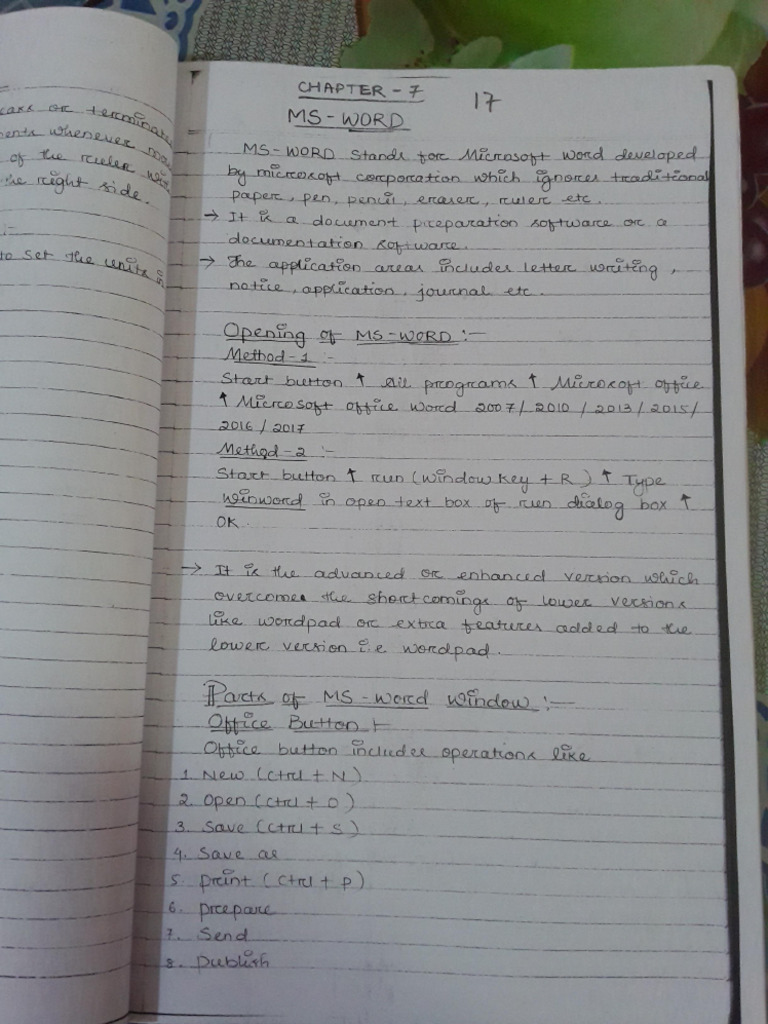 cars or terminate
ents whenever
of the ruler
the right side.
:-
to set the units in
CHAPTER - 7
17
MS - WORD
MS-WORD stands for Microsoft word developed
by microsoft corporation which ignores traditional
paper, pen, pencil, eraser, ruler etc.
→ It is a document preparation software or a
documentation software.
→ The application areas includes letter writing,
notice, application, journal etc.
Opening of MS-WORD :-
Method-1 :-
Start button ↑ All programs ↑ Microsoft office
↑ Microsoft office word 2007/2010/2013/2015/
2016/2017
Method-2 :-
Start button ↑ run (window key + R) ↑ Type
winword in open text box of run dialog box ↑
OK.
→ It is the advanced or enhanced version which
overcomes the shortcomings of lower versions
like wordpad or extra features added to the
lower version i.e wordpad.
Parts of MS-Word window :-
Office Button :-
Office button includes operations like
1. New (Ctrl + N)
2. Open (Ctrl + O)
3. Save (Ctrl + S)
4. Save as
5. print (Ctrl + P)
6. prepare
7. Send
8. publish